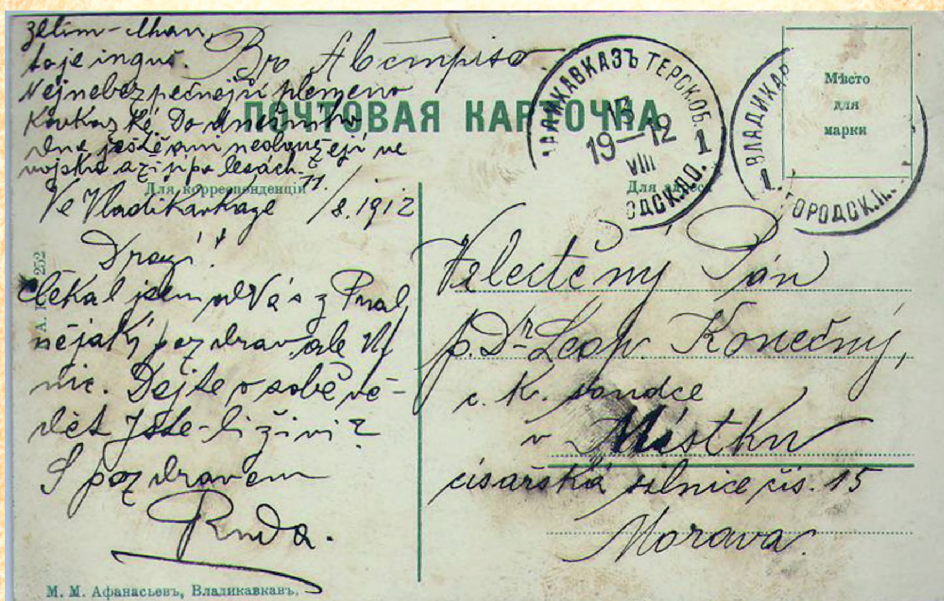 zelim-chan,
to je inguš.
Nejnebezpečnější plemeno
Kavkazké. Do dnešního
dne ještě am neslouzejí ve
vojsku a žijí po lesách.
Bro
ПОЧТОВАЯ КАРТОЧКА
Мѣсто
для
марки
ВЛАДИКАВКАЗЪ ТЕРСК.ОБ.
19–12
VIII
1
ВЛАДИКАВ
1
ГОРОДСК.П.
Для корреспонденціи
Для адреса
Ve Vladikavkaze 11/8. 1912
Drazí!
čekal jsem od Vás z
nějaký pozdrav, ale
nic. Dejte o sobě vě-
dět Jste-li živi?
S pozdravem
Ruda.
Velectěný Pán
p. Dr Leop. Konečný,
c. k. soudce
v Místku
císařská silnice čís. 15
Morava.
А. К. 252
М. М. Афанасьевъ, Владикавкавъ.